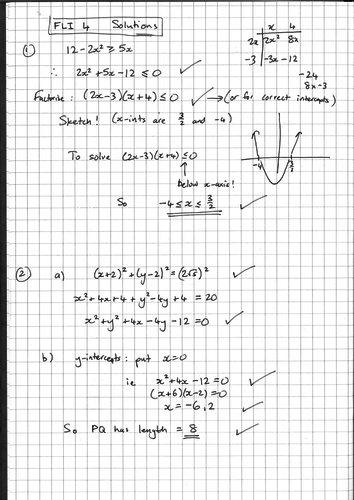 FLI 4 Solutions
x 4
2x 2x² 8x
-3 -3x -12
-24
8x-3
① 12-2x² ≥ 5x
∴ 2x² + 5x -12 ≤ 0 ✓
Factorise: (2x-3)(x+4) ≤ 0 ✓ → (or for correct intercepts)
Sketch! (x-ints are 3/2 and -4)
-4 3/2
To solve (2x-3)(x+4) ≤ 0
↑
below x-axis!
So -4 ≤ x ≤ 3/2 ✓
② a) (x+2)² + (y-2)² = (2√5)² ✓
x² + 4x + 4 + y² - 4y + 4 = 20
x² + y² + 4x - 4y - 12 = 0 ✓
b) y-intercepts: put x=0
ie x² + 4x - 12 = 0 ✓
(x+6)(x-2) = 0
x = -6, 2 ✓
So PQ has length = 8 ✓